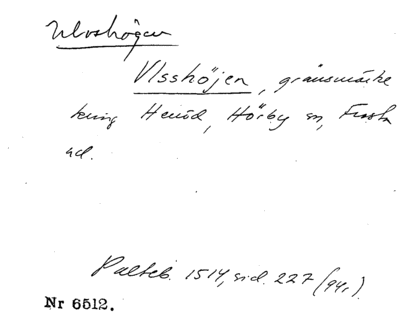 Ulvshögen
Vlsshöjen, gränsmärke
kring Heröd, Hörby sn, Frosta
hd.
Palteb. 1514, sid. 227 (94r).
Nr 6512.